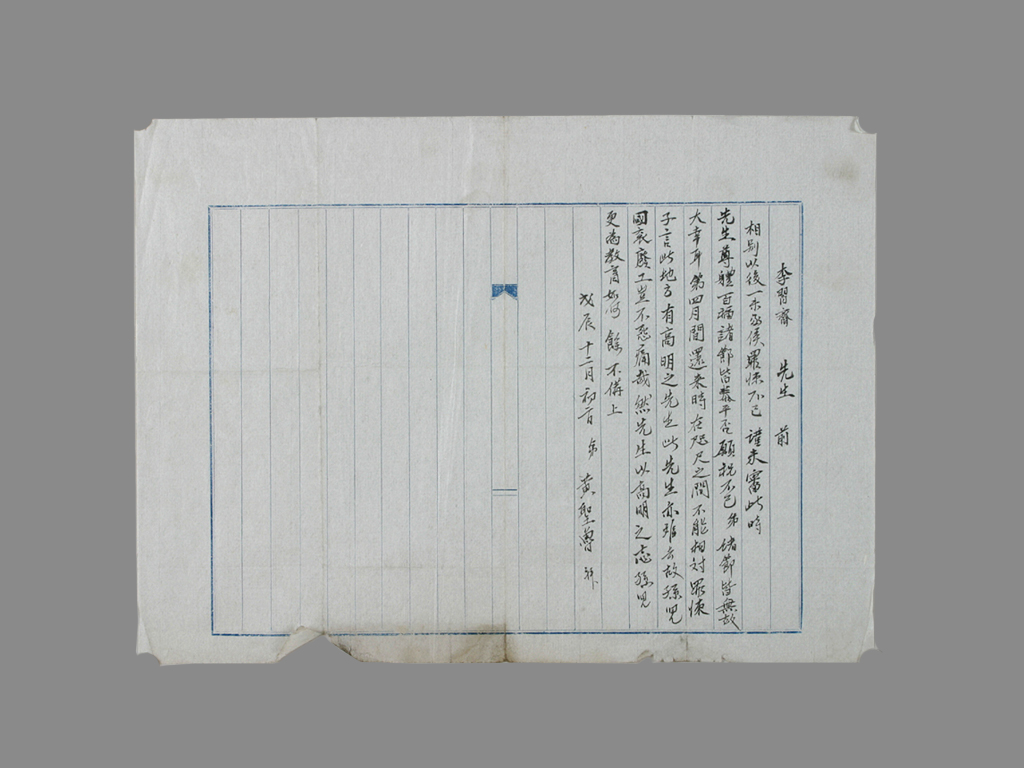 李習齋 先生 前
相別以後一未承候 罪悚不已 謹未審此時
先生尊體百福諸節皆泰平否 願祝不已 弟 諸節皆無故
大幸耳 第四月間還來時在咫尺之間不能相対 罪悚
子言此地方有高明之先生 此先生亦難去故孫兒
國哀廢工豈不愁痛哉 然先生以高明之志孫兒
更為教育如何 餘不備上
戊辰 十二月初二日 弟 黃聖曾 拜